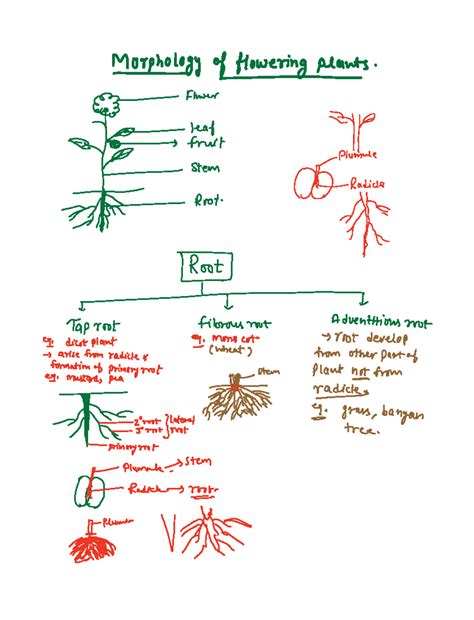 Morphology of flowering plants.
Flower
leaf
fruit
Stem
Root.
Plumule
Radicle
Root
Tap root
eg. dicot plant
→ arise from radicle &
formation of primary root
eg. mustard, pea
2° root
3° root
lateral
root
primary root
Fibrous root
eg. mono cot
(wheat)
Stem
Adventitious root
→ root develop
from other part of
plant not from
radicle.
eg. grass, banyan
tree.
Plumule → Stem
Radicle → root